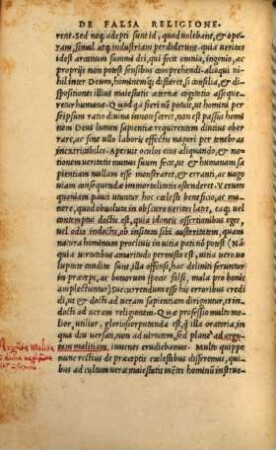 DE FALSA RELIGIONE.
rent. Sed neq; adepti sunt id, quod uolebãt, & ope-
ram, simul atq; industriam perdiderunt. quia ueritas
idest arcanum summi dei, qui fecit omnia, ingenio, ac
proprijs non potest sensibus comprehendi. alioqui ni
hil inter Deum, hominemq; distaret, si consilia, & dis-
positiones illius maiestatis æternæ cogitatio asseque-
retur humana. Quod qa fieri nõ potuit, ut homini per
seipsum ratio diuina innotesceret, non est passus homi
nem Deus lumen sapientiæ requirentem diutius ober
rare, ac sine ullo laboris effectu uagari per tenebras
inextricabiles. Aperuit oculos eius aliquando, & no
tionem ueritatis munus suum fecit, ut & humanam sa
pientiam nullam esse monstraret, & erranti, ac uago
uiam consequendæ immortalitatis ostenderet. Verum
quoniam pauci utuntur hoc cœlesti beneficio, ac mu-
nere, quod obuoluta in obscuro ueritas latet, eaq; uel
contemptui doctis est, quia idoneis assertoribus eget,
uel odio indoctis, ob insitam sibi austeritatem, quam
natura hominum procliuis in uitia pati nõ potest (Nã
quia uirtutibus amaritudo permista est, uitia uero uo
luptate condita sunt, illa offensi, hac deliniti feruntur
in præceps, ac bonorum specie falsi, mala pro bonis
amplectuntur) Succurrendum esse his erroribus credi
di, ut & docti ad ueram sapientiam dirigantur, & indo
cti ad ueram religionem. Quæ professio multo me-
lior, utilior, gloriosior putanda est, q̃ illa oratoria, in
qua diu uersati, non ad uirtutem, sed plane ad argu-
tam malitiam iuuenes erudiebamus. Multo quippe
nunc rectius de præceptis cœlestibus disseremus, qui-
bus ad cultum ueræ maiestatis mẽtes hominũ instrue-